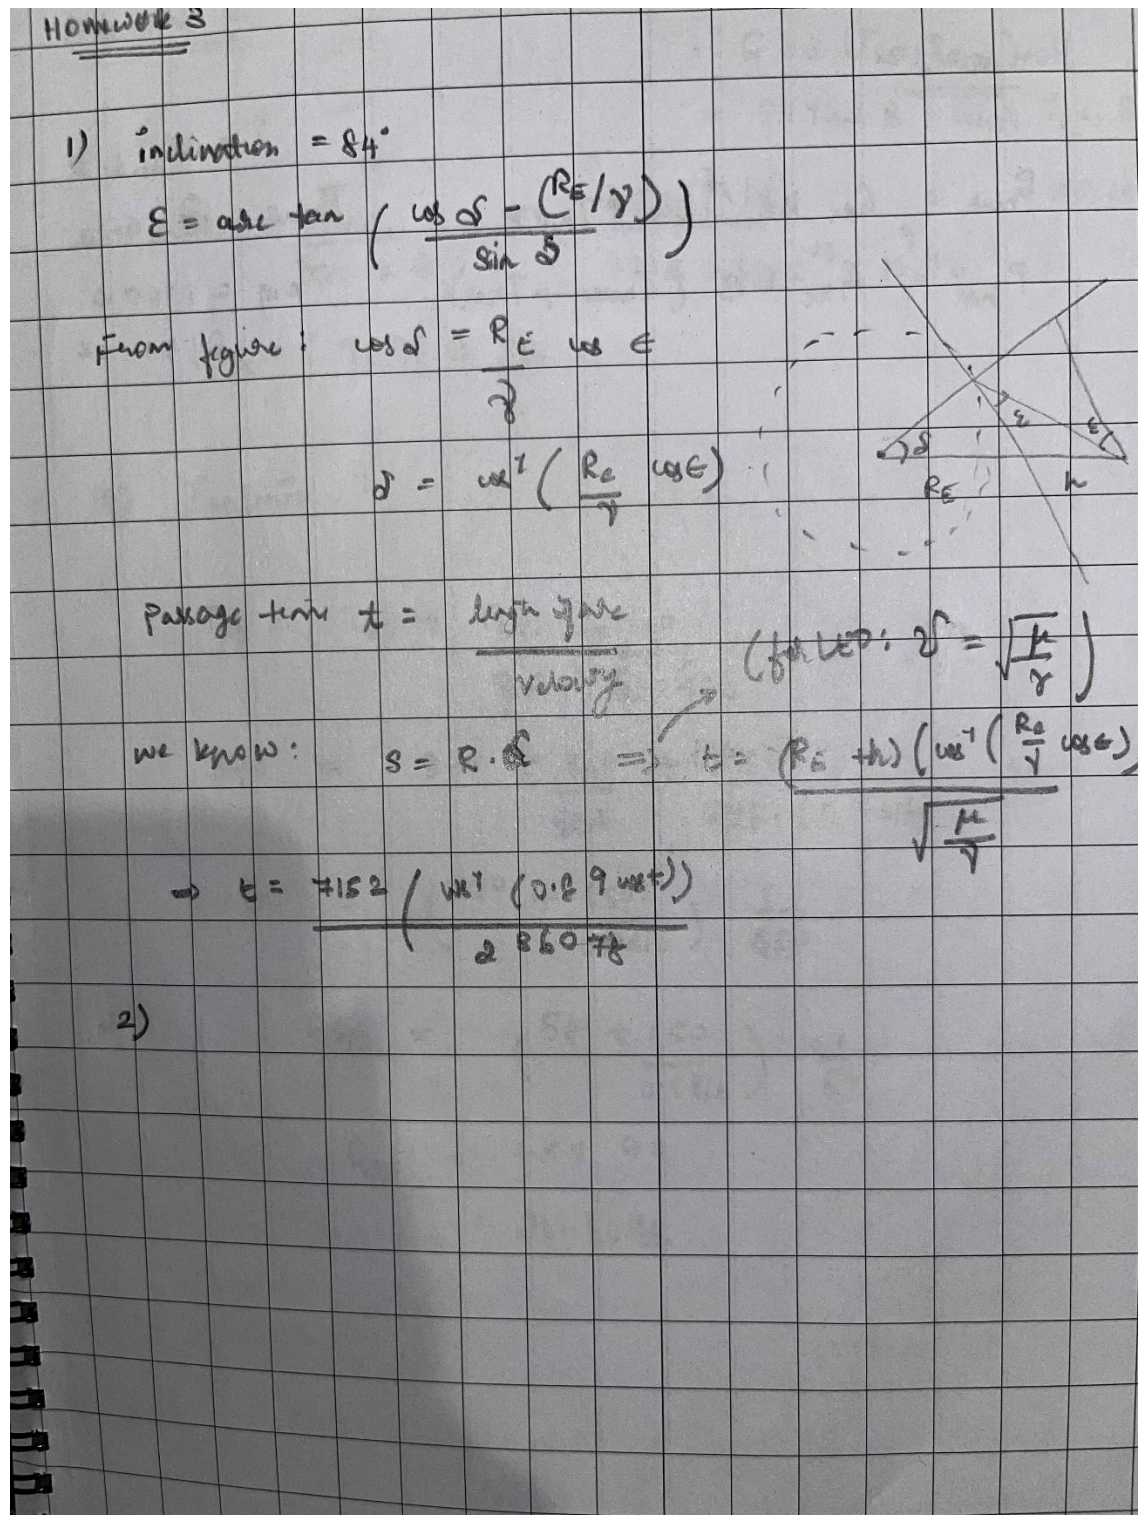 Homework 3
1) inclination = 84°
ε = arc tan ( cos δ - (RE/γ) / sin δ )
From figure : cos δ = RE/γ cos ε
δ = cos⁻¹ ( Re/γ cos ε )
δ ε ε
RE h
Passage time t = length of arc / velocity (for LEO: v = √(μ/γ))
we know: s = R.δ ⇒ t = (RE + h) (cos⁻¹ ( Re/γ cos ε) / √(μ/γ)
⇒ t = 7152 ( cos⁻¹ (0.89 cos ε)) / 286078
2)